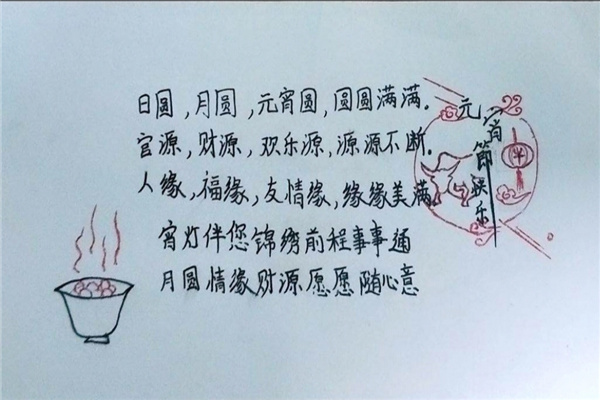 日圆，月圆，元宵圆，圆圆满满.
官源，财源，欢乐源，源源不断.
人缘，福缘，友情缘，缘缘美满
宵灯伴您锦绣前程事事通
月圆情缘财源愿愿随心意
元宵節快乐